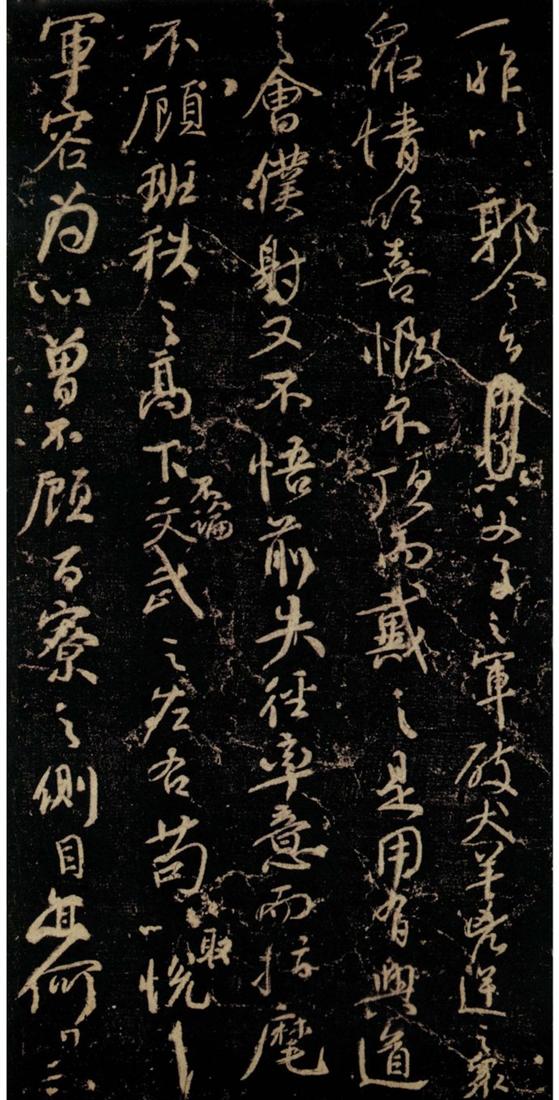 一昨以郭令公以父子之軍破犬羊兇逆之眾
眾情欣喜恨不頂而戴之是用有興道
之會僕射又不悟前失徑率意而指麾
不顧班秩之高下不論文武之左右苟以取悅
軍容為心曾不顧百寮之側目亦何異